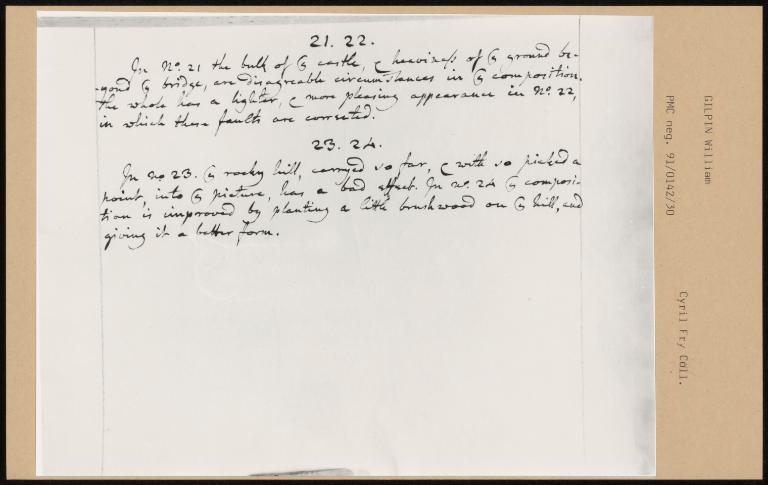 21. 22.
In No. 21 the bulk of ye castle, & heaviness of ye ground be-
-yond ye bridge, are disagreable circumstances in ye composition.
The whole has a lighter, & more pleasing appearance in No. 22,
in which these faults are corrected.
23. 24.
In no 23. ye rocky hill, carryed so far, & with so picked a
point, into ye picture, has a bad effect. In no. 24 ye composi-
tion is improved by planting a little brushwood on ye hill, and
giving it a better form.
GILPIN William
PMC neg. 91/0142/30
Cyril Fry Coll.